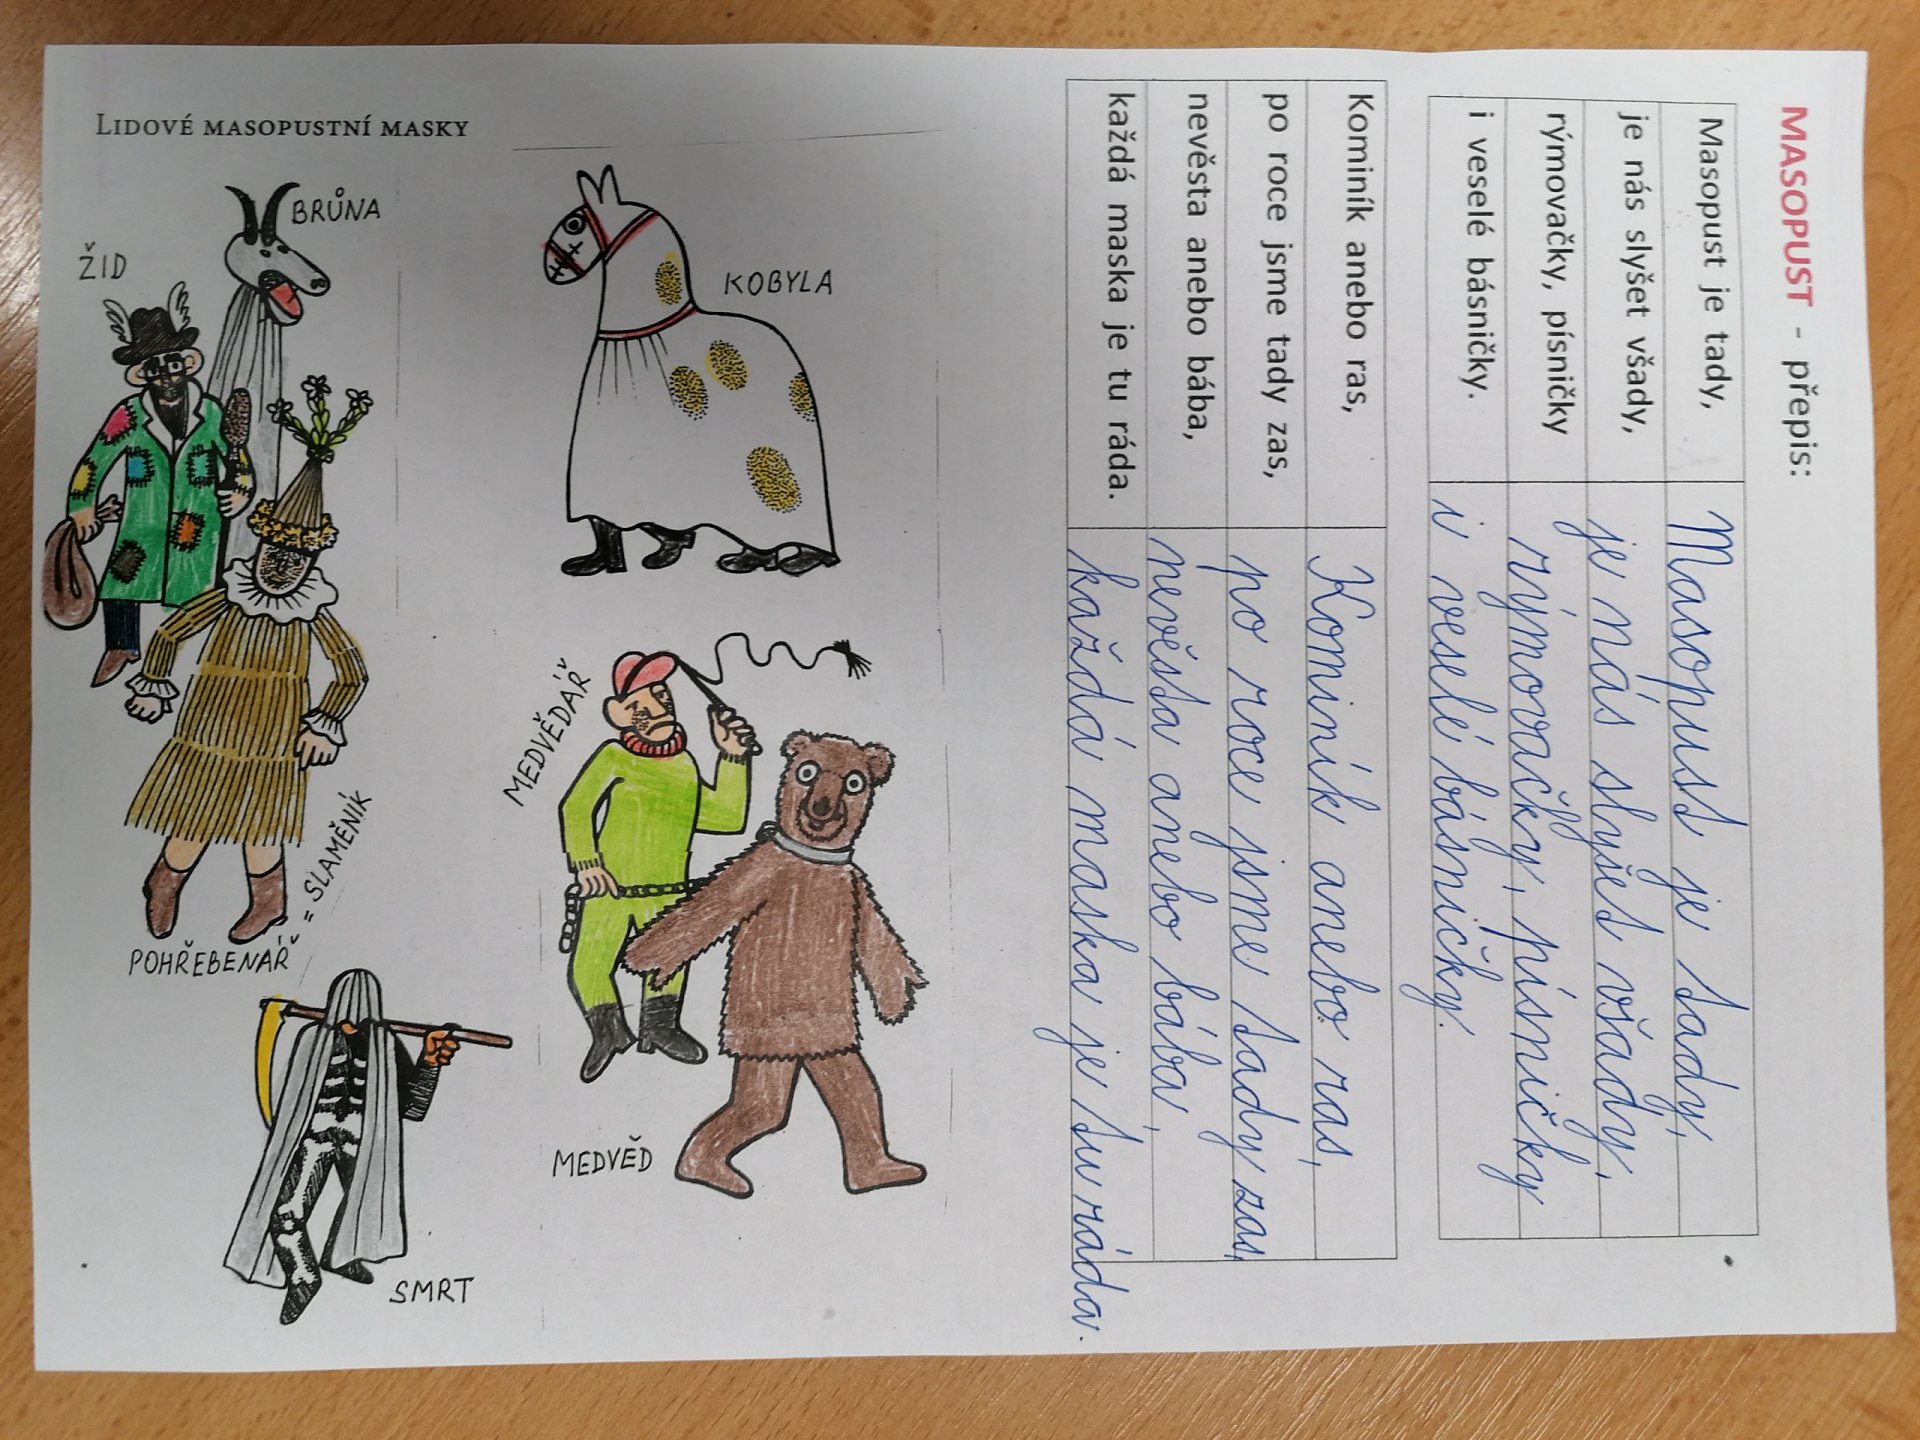 MASOPUST - přepis:
Masopust je tady,
Masopust je tady,
je nás slyšet všady,
je nás slyšet všady,
rýmovačky, písničky
rýmovačky, písničky
i veselé básničky.
i veselé básničky.
Kominík anebo ras,
Kominík anebo ras,
po roce jsme tady zas,
po roce jsme tady zas,
nevěsta anebo bába,
nevěsta anebo bába,
každá maska je tu ráda.
každá maska je tu ráda.
LIDOVÉ MASOPUSTNÍ MASKY
KOBYLA
MEDVĚDÁŘ
MEDVĚD
BRŮNA
ŽID
POHŘEBENÁŘ = SLAMĚNÍK
SMRT